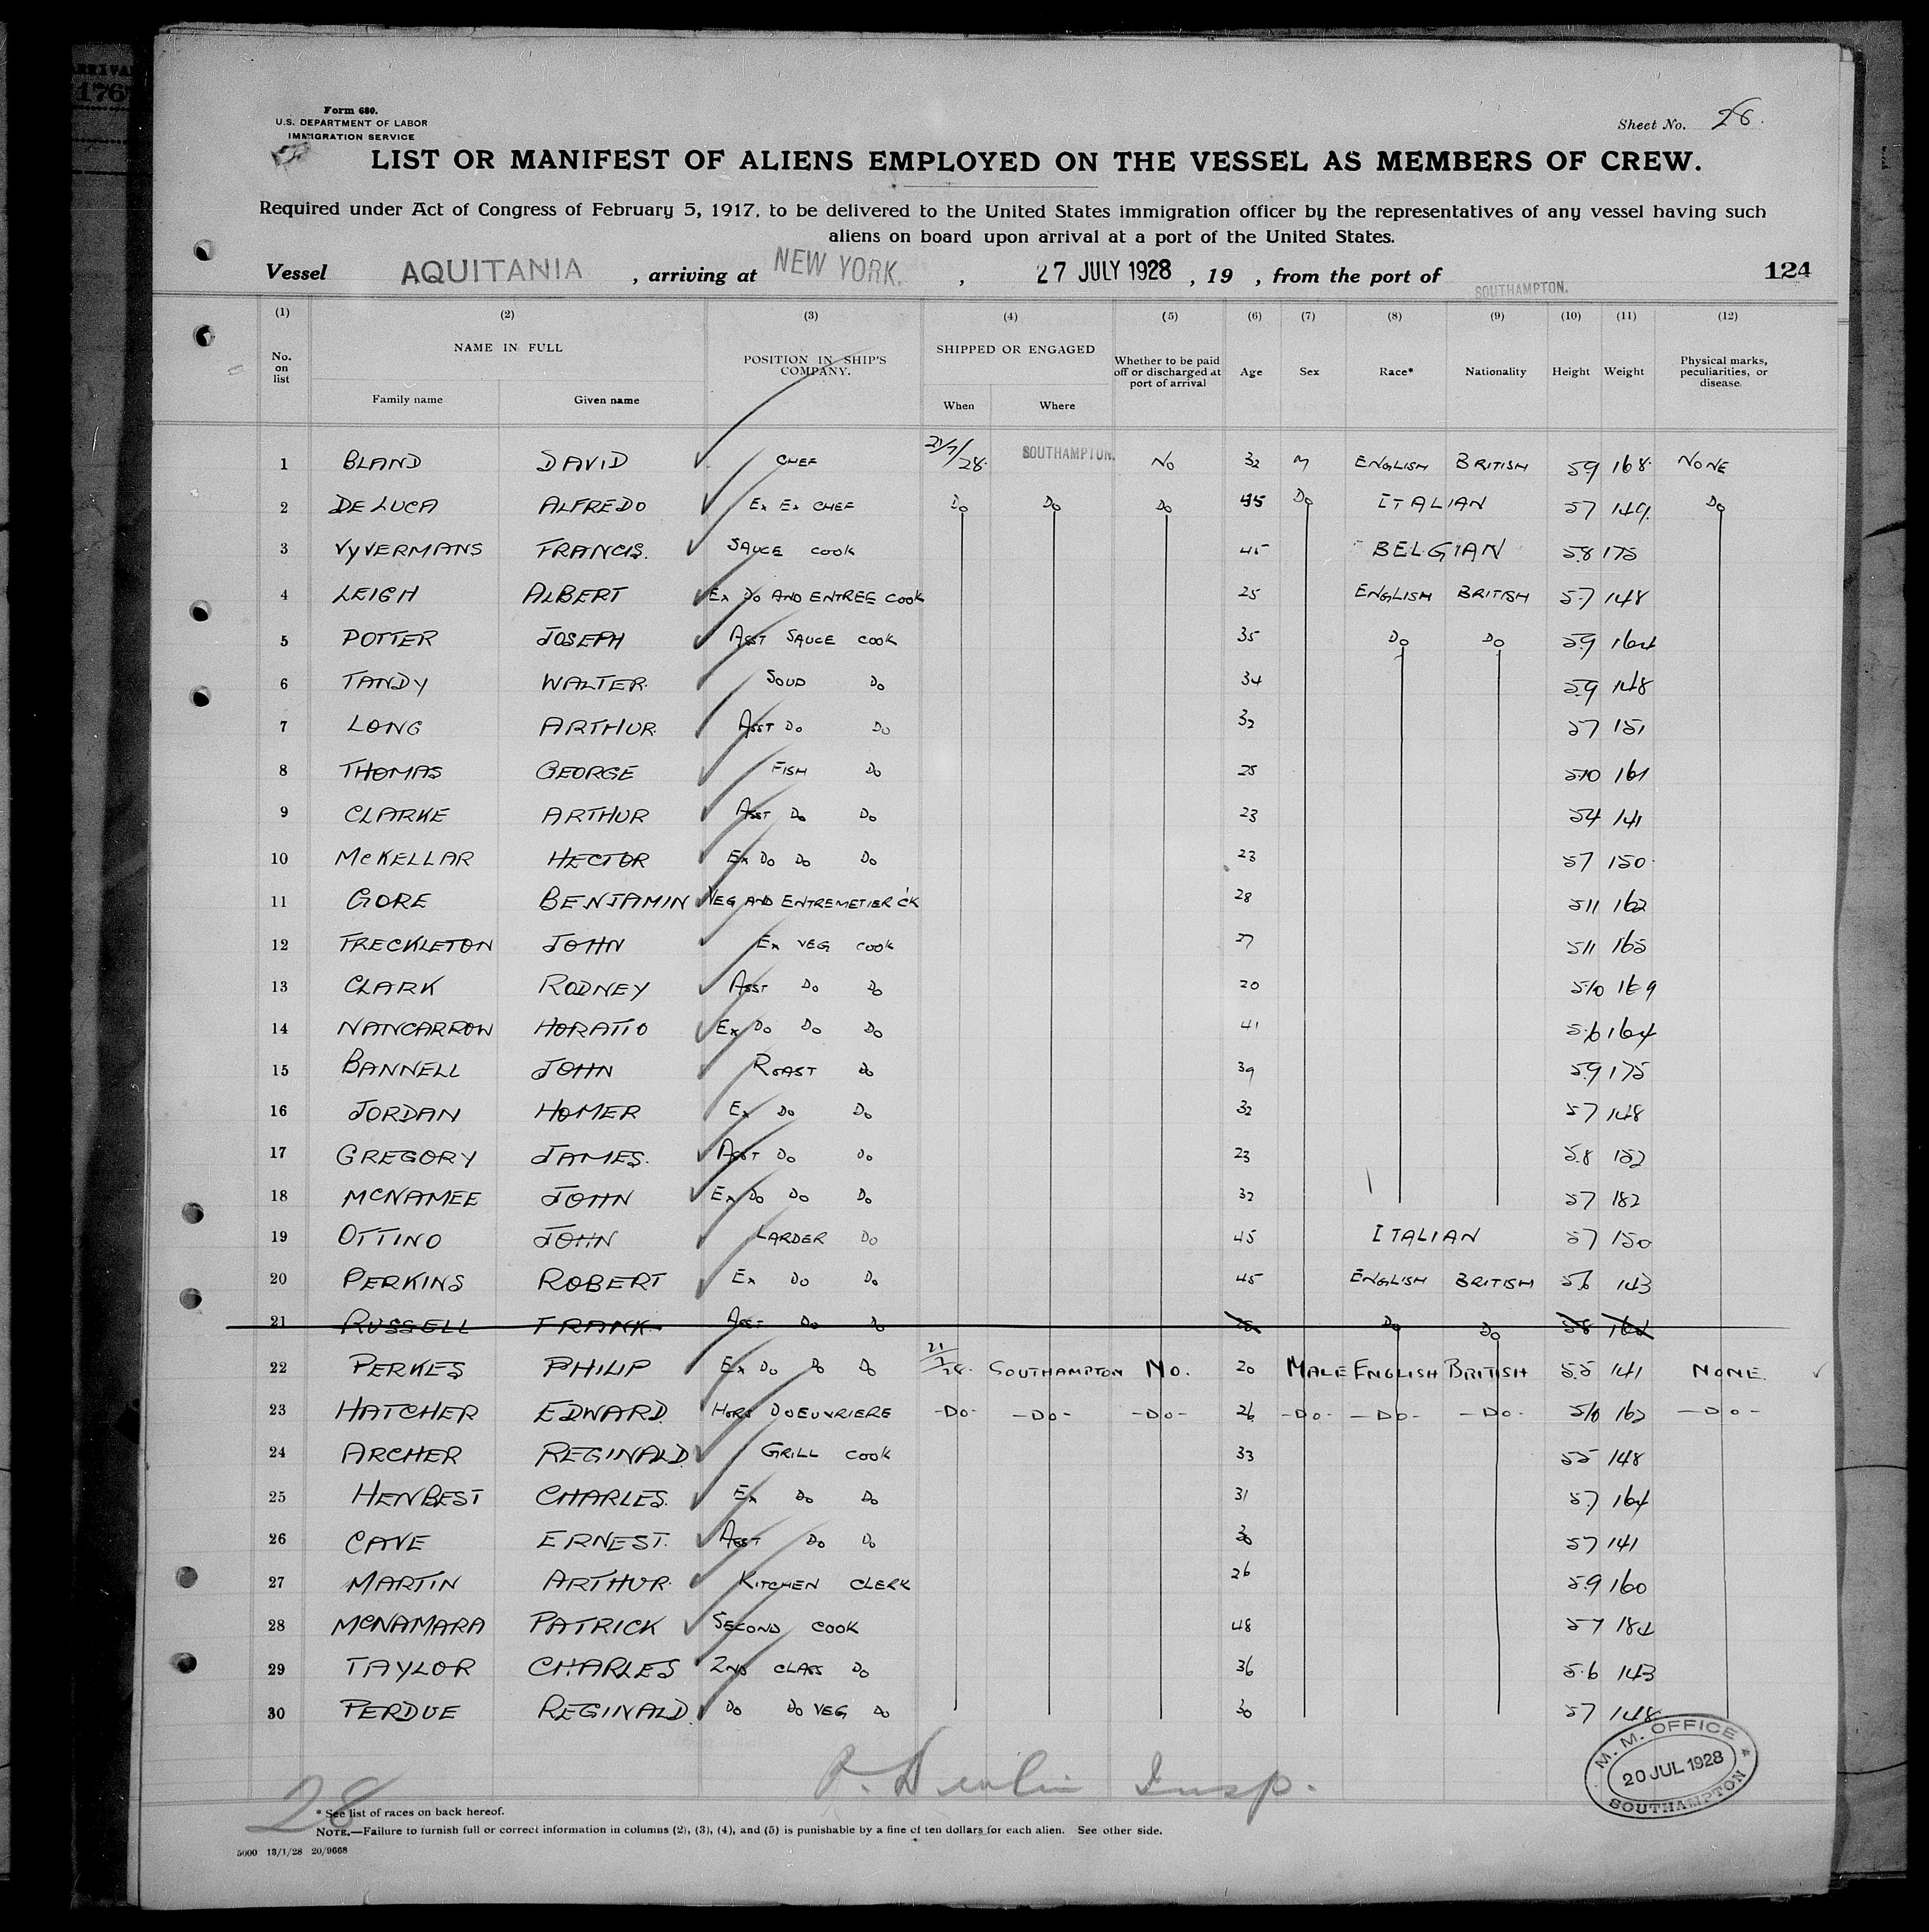 ARRIVA
176
Form 680.
U.S. DEPARTMENT OF LABOR
IMMIGRATION SERVICE
Sheet No. 28.
LIST OR MANIFEST OF ALIENS EMPLOYED ON THE VESSEL AS MEMBERS OF CREW.
Required under Act of Congress of February 5, 1917, to be delivered to the United States immigration officer by the representatives of any vessel having such
aliens on board upon arrival at a port of the United States.
Vessel AQUITANIA , arriving at NEW YORK. , 27 JULY 1928 , 19 , from the port of SOUTHAMPTON. 124
(1) (2) (3) (4) (5) (6) (7) (8) (9) (10) (11) (12)
No. on list NAME IN FULL Family name Given name POSITION IN SHIP'S COMPANY. SHIPPED OR ENGAGED When Where Whether to be paid off or discharged at port of arrival Age Sex Race* Nationality Height Weight Physical marks, peculiarities, or disease.
1 BLAND DAVID CHEF 21/7/28. SOUTHAMPTON. No 32 M ENGLISH BRITISH 5.9 168. NONE
2 DE LUCA ALFREDO Ex Ex CHEF Do Do Do 45 Do ITALIAN 57 149. Do
3 VYVERMANS FRANCIS. SAUCE COOK 45 BELGIAN 5.8 175
4 LEIGH ALBERT Ex Do AND ENTREE COOK 25 ENGLISH BRITISH 5.7 148
5 POTTER JOSEPH ASST SAUCE COOK 35 Do Do 59 164
6 TANDY WALTER. SOUP Do 34 5.9 148
7 LONG ARTHUR. ASST Do Do 32 57 151
8 THOMAS GEORGE FISH Do 25 5.10 161
9 CLARKE ARTHUR ASST Do Do 23 54 141
10 McKELLAR HECTOR Ex Do Do Do 23 57 150.
11 GORE BENJAMIN VEG AND ENTREMETIER C'K 28 511 162
12 FRECKLETON JOHN Ex VEG COOK 27 511 165
13 CLARK RODNEY ASST Do Do 20 5.10 169
14 NANCARROW HORATIO Ex Do Do Do 41 5.6 164
15 BANNELL JOHN ROAST Do 39 5.9 175
16 JORDAN HOMER Ex Do Do 32 57 148
17 GREGORY JAMES. ASST Do Do 23 5.8 152
18 McNAMEE JOHN Ex Do Do Do 32 57 182
19 OTTINO JOHN LARDER Do 45 ITALIAN 57 150
20 PERKINS ROBERT Ex Do Do 45 ENGLISH BRITISH 5.6 143
21 RUSSELL FRANK. ASST Do Do Do Do 58
22 PERKES PHILIP Ex Do Do Do 21/7/28. SOUTHAMPTON NO. 20 MALE ENGLISH BRITISH 5.5 141 NONE.
23 HATCHER EDWARD. HORS DOEUVRIERE -Do- -Do- -Do- 26 -Do- -Do- -Do- 5.10 162 -Do-
24 ARCHER REGINALD. GRILL COOK 33 55 148
25 HENBEST CHARLES. Ex Do Do 31 5.7 164
26 CAVE ERNEST. ASST Do Do 30 57 141
27 MARTIN ARTHUR. KITCHEN CLERK 26 5.9 160
28 McNAMARA PATRICK SECOND COOK 48 57 184
29 TAYLOR CHARLES 2ND CLASS Do 36 5.6 143
30 PERDUE REGINALD. Do Do VEG Do 30 57 148
Insp.
M. M. OFFICE
20 JUL 1928
SOUTHAMPTON
28
* See list of races on back hereof.
NOTE.—Failure to furnish full or correct information in columns (2), (3), (4), and (5) is punishable by a fine of ten dollars for each alien. See other side.
5000 13/1/28 20/9668